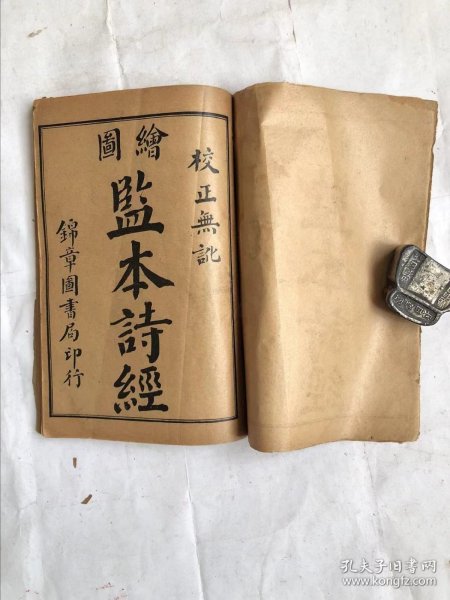 校正無訛
繪圖
監本詩經
錦章圖書局印行
孔夫子旧书网
www.kongfz.com